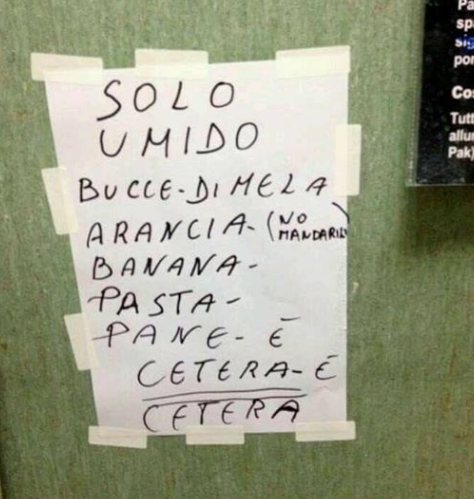 SOLO
UMIDO
BUCCE-DI MELA
ARANCIA-(NO
MANDARIN
BANANA-
PASTA-
PANE- È
CETERA-È
CETERA
Pa
sp
sig
por
Co
Tutt
allu
Pak)